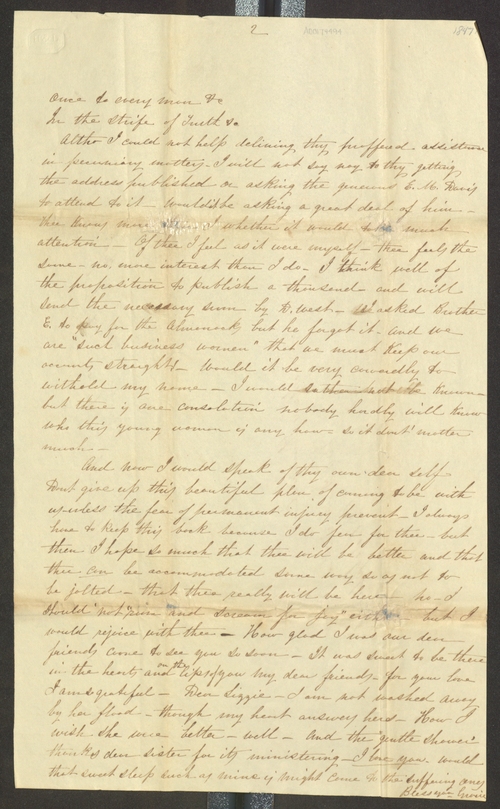 2
1847
Once to every man &c
In the strife of Truth &c
Altho I could not help declining thy proffered assistance
in pecuniary matters I will not say nay to thy getting
the address published or asking the generous E. M. Davis
to attend to it - would it be asking a great deal of him -
thee knows more whether it would be much
attention - Of thee I feel as it were myself - thee feels the
same - no more interest than I do - I think well of
the proposition to publish a thousand and will
send the necessary soon by B. West - I asked Brother
E. to pay for the Almanacks but he forgot it. and we
are "such business women" that we must keep our
accounts straight - Would it be very cowardly to
withold my name - I would rather not be known -
but there is one consolation nobody hardly will know
who this young woman is any how - so it don't matter
much -
And now I would speak of thy own dear self
Dont give up this beautiful plan of coming to be with
us unless the fear of permanent injury prevent - I always
have to keep this back because I do fear for thee - but
then I hope so much that thee will be better and that
thee can be accommodated some way so as not to
be jolted - that thee really will be here - no I
should not "sing and scream for joy" either - but I
would rejoice with thee - How glad I was our dear
friends came to see you so soon - It was sweet to be there
in the hearts and on the lips of you my dear friends - for your love
I am grateful - Dear Lizzie - I am not washed away
by her flood - though my heart answers hers - How I
wish she were better - well - and the gentle shower
thanks dear sister for its ministering - I love you. would
that sweet sleep such as mine is might come to the suffering ones
Blesses